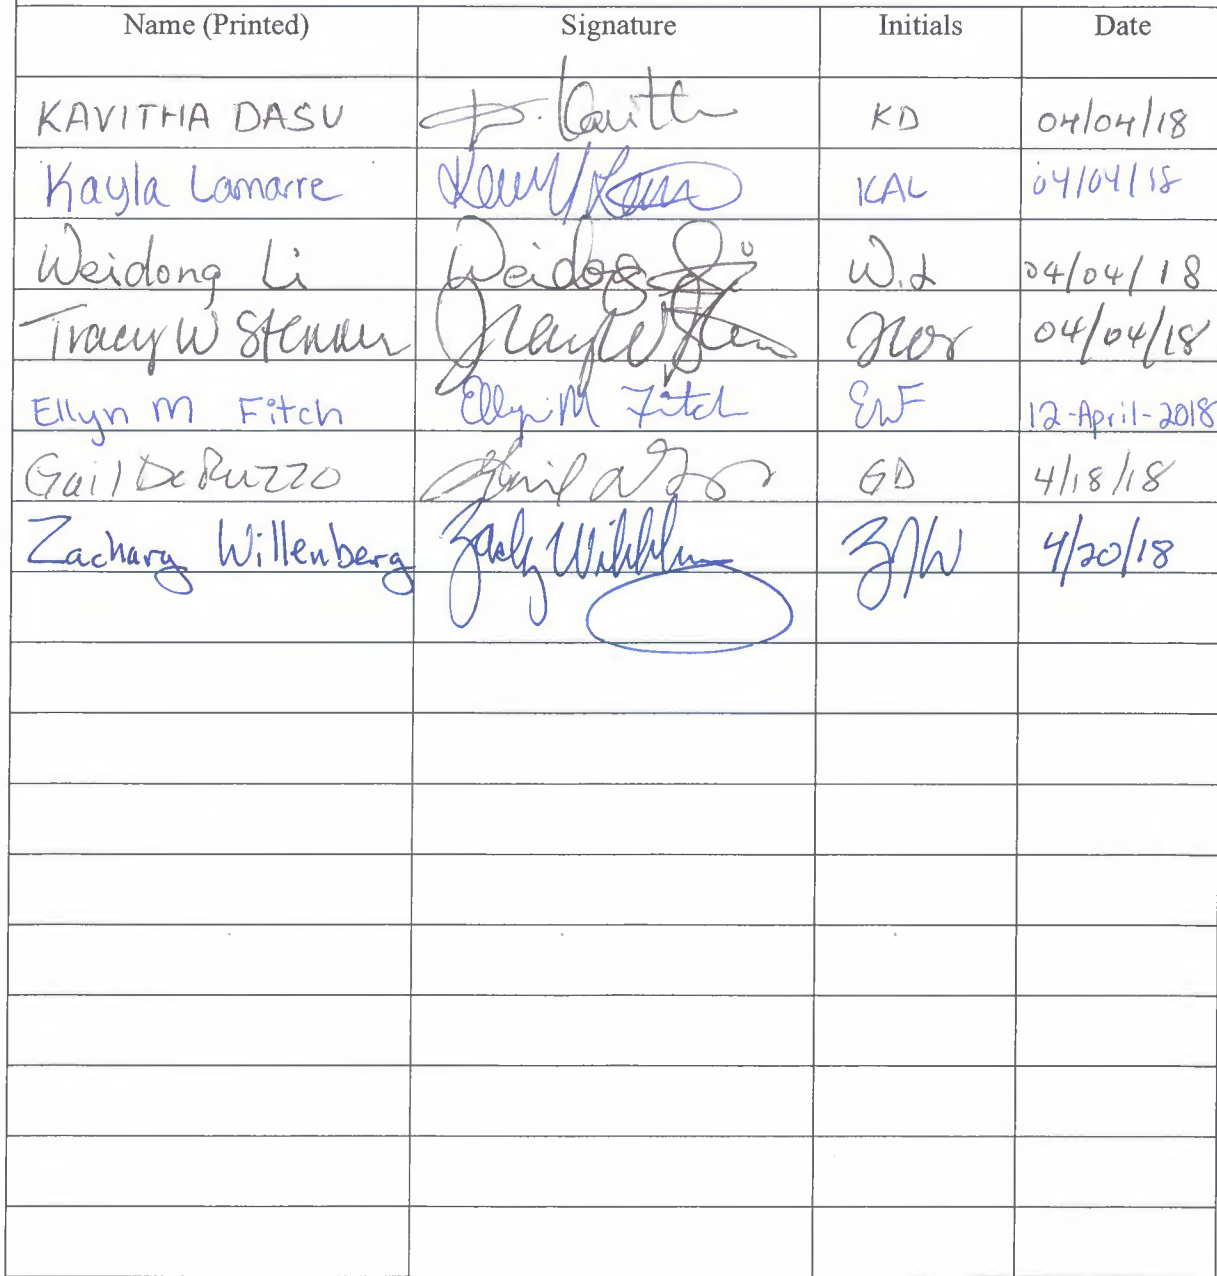 Name (Printed) Signature Initials Date
KAVITHA DASU D. Kavitha KD 04/04/18
Kayla Lamarre KAL 04/04/18
Weidong Li Weidong Li W.L 04/04/18
Tracy W Stenner Tracy W 04/04/18
Ellyn M Fitch Ellyn M Fitch EMF 12-April-2018
Gail DeRuzzo Gail GD 4/18/18
Zachary Willenberg ZJW 4/20/18